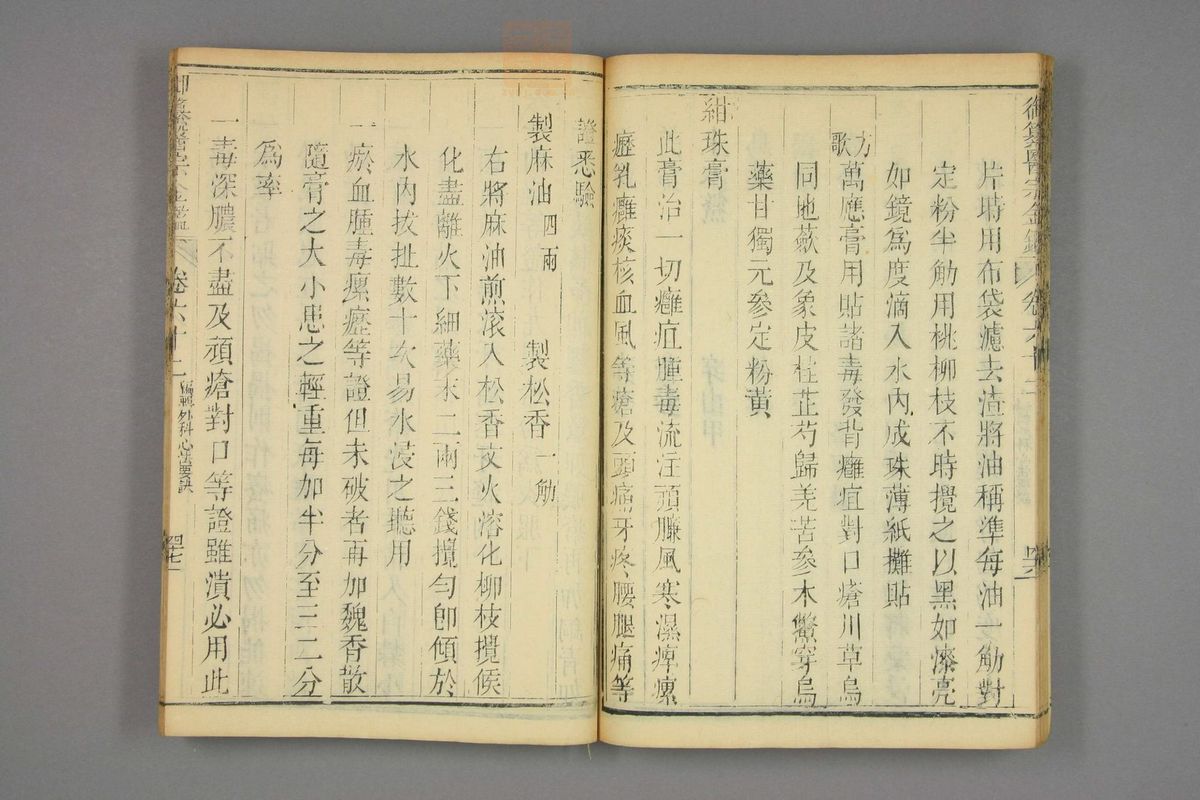 御纂醫宗金鑑 卷六十二 四六
片時用布袋濾去渣將油稱準每油一觔對
定粉半觔用桃柳枝不時攪之以黑如漆亮
如鏡爲度滴入水內成珠薄紙攤貼
方歌 萬應膏用貼諸毒發背癰疽對口瘡川草烏
同地蘞及象皮桂芷芍歸羌苦參木鱉穿烏
藥甘獨元參定粉黃
紺珠膏
此膏治一切癰疽腫毒流注頑臁風寒濕痺瘰
癧乳癰痰核血風等瘡及頭痛牙疼腰腿痛等
證悉驗
製麻油四兩 製松香一觔
右將麻油煎滾入松香文火溶化柳枝攪候
化盡離火下細藥末二兩三錢攪勻卽傾於
水內拔扯數十次易水浸之聽用
一瘀血腫毒瘰癧等證但未破者再加魏香散
隨膏之大小患之輕重每加半分至三二分
爲率
一毒深膿不盡及頑瘡對口等證雖潰必用此
卷六十二 編輯外科心法要訣 四七